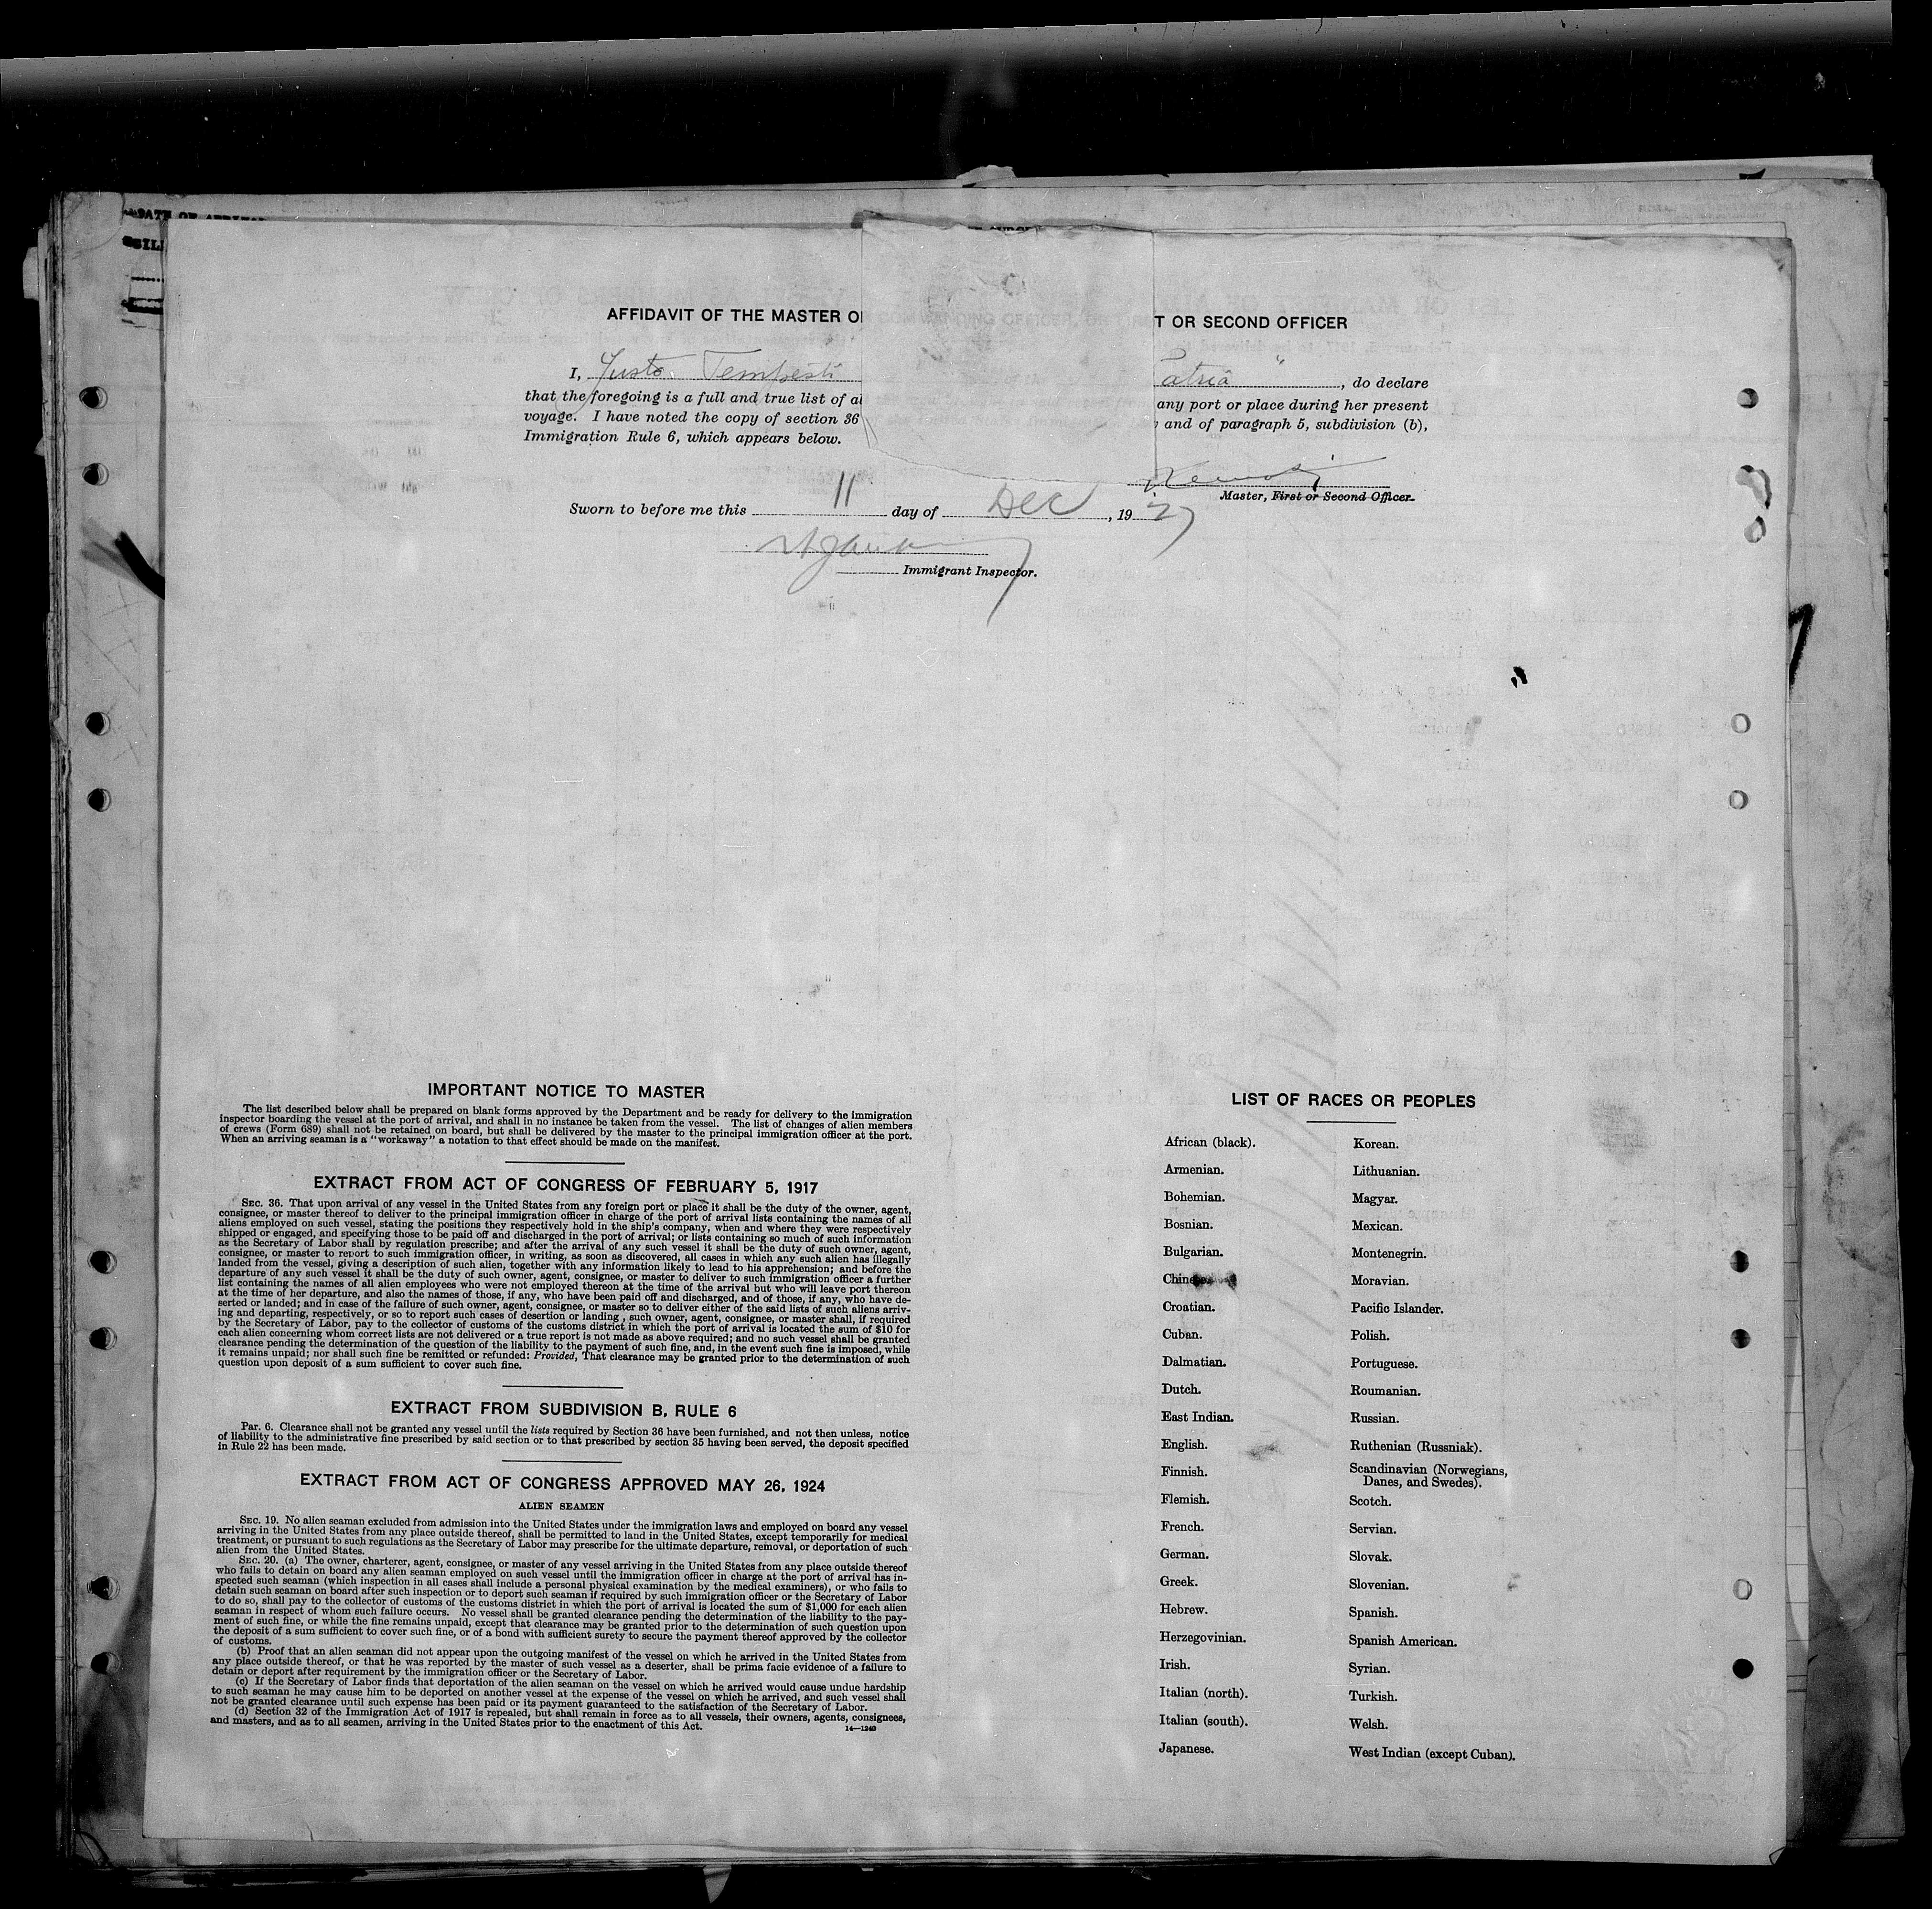 AFFIDAVIT OF THE MASTER OR COMMANDING OFFICER, OR FIRST OR SECOND OFFICER
I, Tempesti atria ", do declare
that the foregoing is a full and true list of al any port or place during her present
voyage. I have noted the copy of section 36 and of paragraph 5, subdivision (b),
Immigration Rule 6, which appears below.
Master, First or Second Officer.
Sworn to before me this 11 day of Dec, 1927
Immigrant Inspector.
IMPORTANT NOTICE TO MASTER
The list described below shall be prepared on blank forms approved by the Department and be ready for delivery to the immigration
inspector boarding the vessel at the port of arrival, and shall in no instance be taken from the vessel. The list of changes of alien members
of crews (Form 689) shall not be retained on board, but shall be delivered by the master to the principal immigration officer at the port.
When an arriving seaman is a "workaway" a notation to that effect should be made on the manifest.
EXTRACT FROM ACT OF CONGRESS OF FEBRUARY 5, 1917
SEC. 36. That upon arrival of any vessel in the United States from any foreign port or place it shall be the duty of the owner, agent,
consignee, or master thereof to deliver to the principal immigration officer in charge of the port of arrival lists containing the names of all
aliens employed on such vessel, stating the positions they respectively hold in the ship's company, when and where they were respectively
shipped or engaged, and specifying those to be paid off and discharged in the port of arrival; or lists containing so much of such information
as the Secretary of Labor shall by regulation prescribe; and after the arrival of any such vessel it shall be the duty of such owner, agent,
consignee, or master to report to such immigration officer, in writing, as soon as discovered, all cases in which any such alien has illegally
landed from the vessel, giving a description of such alien, together with any information likely to lead to his apprehension; and before the
departure of any such vessel it shall be the duty of such owner, agent, consignee, or master to deliver to such immigration officer a further
list containing the names of all alien employees who were not employed thereon at the time of the arrival but who will leave port thereon
at the time of her departure, and also the names of those, if any, who have been paid off and discharged, and of those, if any, who have de-
serted or landed; and in case of the failure of such owner, agent, consignee, or master so to deliver either of the said lists of such aliens arriv-
ing and departing, respectively, or so to report such cases of desertion or landing , such owner, agent, consignee, or master shall, if required
by the Secretary of Labor, pay to the collector of customs of the customs district in which the port of arrival is located the sum of $10 for
each alien concerning whom correct lists are not delivered or a true report is not made as above required; and no such vessel shall be granted
clearance pending the determination of the question of the liability to the payment of such fine, and, in the event such fine is imposed, while
it remains unpaid; nor shall such fine be remitted or refunded: Provided, That clearance may be granted prior to the determination of such
question upon deposit of a sum sufficient to cover such fine.
EXTRACT FROM SUBDIVISION B, RULE 6
Par. 6. Clearance shall not be granted any vessel until the lists required by Section 36 have been furnished, and not then unless, notice
of liability to the administrative fine prescribed by said section or to that prescribed by section 35 having been served, the deposit specified
in Rule 22 has been made.
EXTRACT FROM ACT OF CONGRESS APPROVED MAY 26, 1924
ALIEN SEAMEN
SEC. 19. No alien seaman excluded from admission into the United States under the immigration laws and employed on board any vessel
arriving in the United States from any place outside thereof, shall be permitted to land in the United States, except temporarily for medical
treatment, or pursuant to such regulations as the Secretary of Labor may prescribe for the ultimate departure, removal, or deportation of such
alien from the United States.
SEC. 20. (a) The owner, charterer, agent, consignee, or master of any vessel arriving in the United States from any place outside thereof
who fails to detain on board any alien seaman employed on such vessel until the immigration officer in charge at the port of arrival has in-
spected such seaman (which inspection in all cases shall include a personal physical examination by the medical examiners), or who fails to
detain such seaman on board after such inspection or to deport such seaman if required by such immigration officer or the Secretary of Labor
to do so, shall pay to the collector of customs of the customs district in which the port of arrival is located the sum of $1,000 for each alien
seaman in respect of whom such failure occurs. No vessel shall be granted clearance pending the determination of the liability to the pay-
ment of such fine, or while the fine remains unpaid, except that clearance may be granted prior to the determination of such question upon
the deposit of a sum sufficient to cover such fine, or of a bond with sufficient surety to secure the payment thereof approved by the collector
of customs.
(b) Proof that an alien seaman did not appear upon the outgoing manifest of the vessel on which he arrived in the United States from
any place outside thereof, or that he was reported by the master of such vessel as a deserter, shall be prima facie evidence of a failure to
detain or deport after requirement by the immigration officer or the Secretary of Labor.
(c) If the Secretary of Labor finds that deportation of the alien seaman on the vessel on which he arrived would cause undue hardship
to such seaman he may cause him to be deported on another vessel at the expense of the vessel on which he arrived, and such vessel shall
not be granted clearance until such expense has been paid or its payment guaranteed to the satisfaction of the Secretary of Labor.
(d) Section 32 of the Immigration Act of 1917 is repealed, but shall remain in force as to all vessels, their owners, agents, consignees,
and masters, and as to all seamen, arriving in the United States prior to the enactment of this Act.
14—1240
LIST OF RACES OR PEOPLES
African (black).
Armenian.
Bohemian.
Bosnian.
Bulgarian.
Chinese.
Croatian.
Cuban.
Dalmatian.
Dutch.
East Indian.
English.
Finnish.
Flemish.
French.
German.
Greek.
Hebrew.
Herzegovinian.
Irish.
Italian (north).
Italian (south).
Japanese.
Korean.
Lithuanian.
Magyar.
Mexican.
Montenegrin.
Moravian.
Pacific Islander.
Polish.
Portuguese.
Roumanian.
Russian.
Ruthenian (Russniak).
Scandinavian (Norwegians,
Danes, and Swedes).
Scotch.
Servian.
Slovak.
Slovenian.
Spanish.
Spanish American.
Syrian.
Turkish.
Welsh.
West Indian (except Cuban).